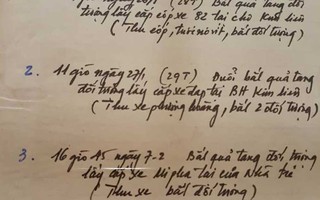 bắt quả tang đối
tượng lấy cắp xe 82 tại chợ Kim liên
(Thu cốp, tuốc nơ vít, bắt đối tượng)
2. 11 giờ ngày 27/1, (29T) Đuổi bắt quả tang
đối tượng lấy cắp xe đạp trị BH Kim liên
(Thu xe phượng hoàng, bắt 2 đối tượng)
3. 16 giờ 45 ngày 7-2 Bắt quả tang đối tượng
lấy cắp xe mipha tại cửa Nhà trẻ
(Thu xe bắt đối tượng)